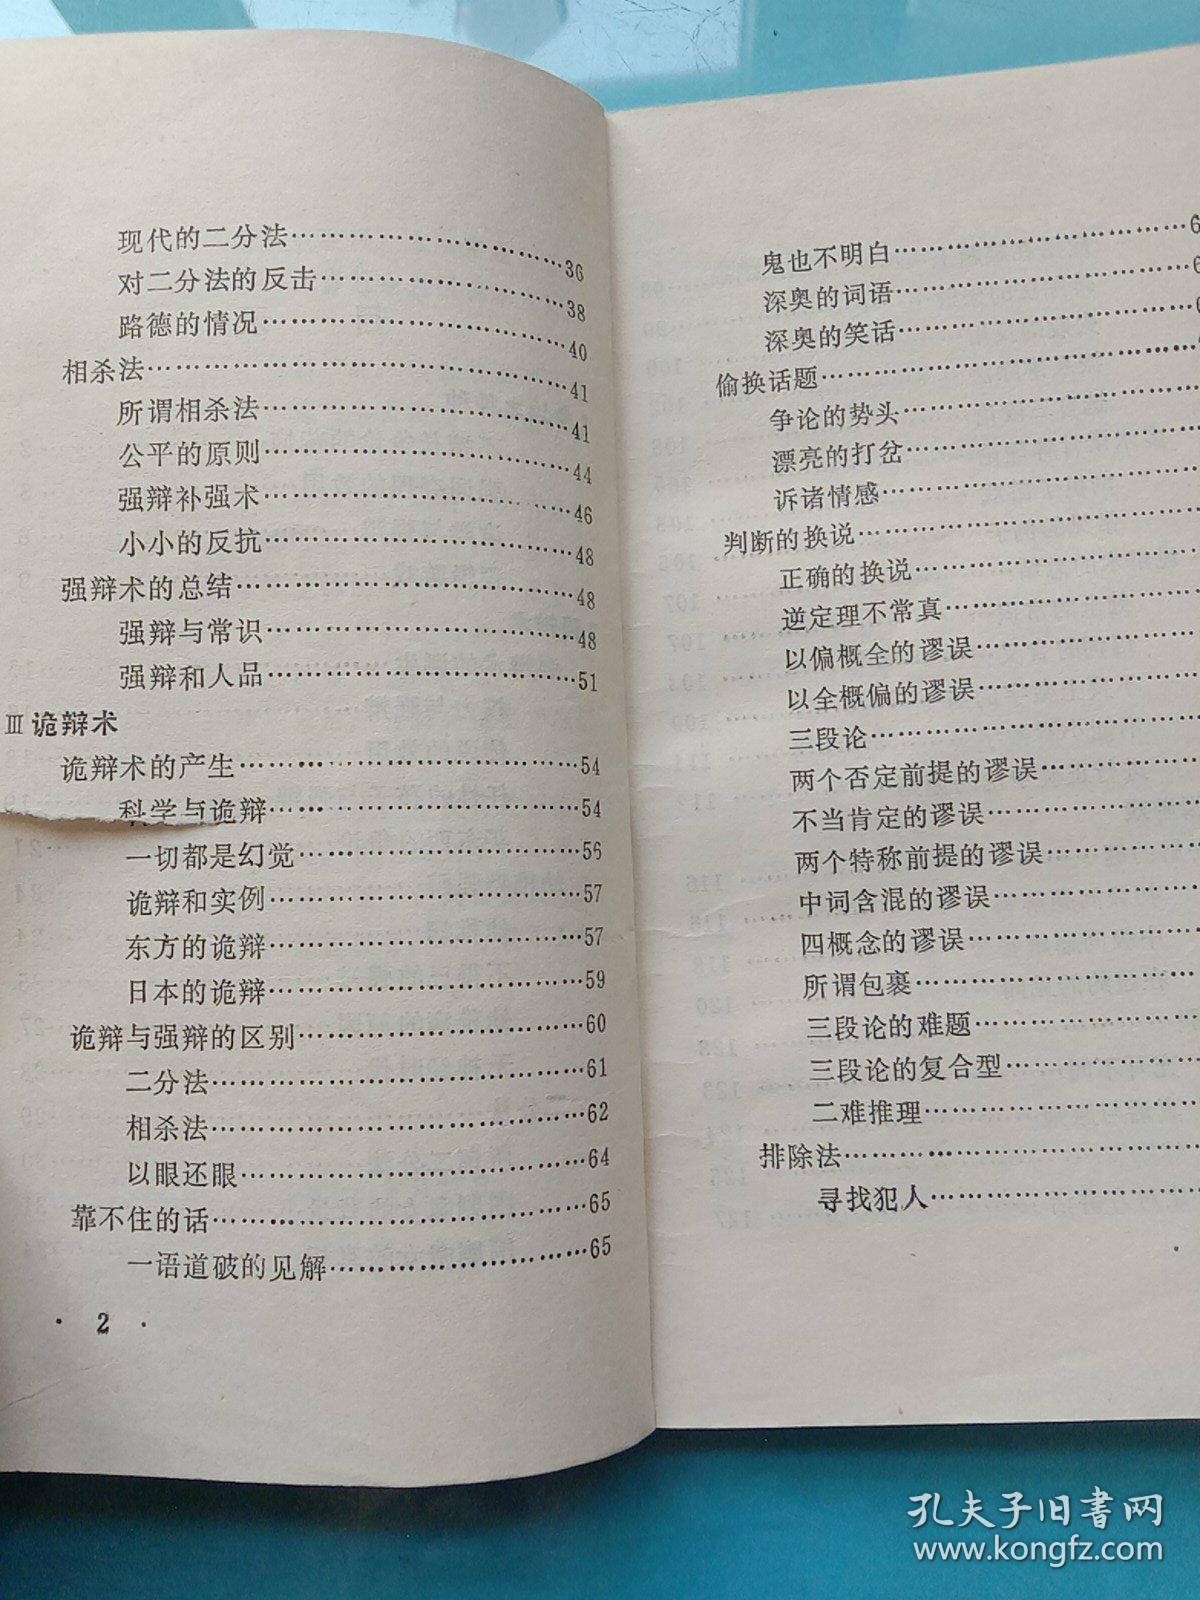 现代的二分法……………………36
对二分法的反击…………………38
路德的情况………………………40
相杀法……………………………41
所谓相杀法………………………41
公平的原则………………………44
强辩补强术………………………46
小小的反抗………………………48
强辩术的总结……………………48
强辩与常识………………………48
强辩和人品………………………51
Ⅲ 诡辩术
诡辩术的产生……………………54
科学与诡辩………………………54
一切都是幻觉……………………56
诡辩和实例………………………57
东方的诡辩………………………57
日本的诡辩………………………59
诡辩与强辩的区别………………60
二分法……………………………61
相杀法……………………………62
以眼还眼…………………………64
靠不住的话………………………65
一语道破的见解…………………65
· 2 ·
鬼也不明白………………………6
深奥的词语………………………6
深奥的笑话………………………6
偷换话题…………………………
争论的势头………………………
漂亮的打岔………………………
诉诸情感…………………………
判断的换说………………………
正确的换说………………………
逆定理不常真……………………
以偏概全的谬误…………………
以全概偏的谬误…………………
三段论……………………………
两个否定前提的谬误……………
不当肯定的谬误…………………
两个特称前提的谬误……………
中词含混的谬误…………………
四概念的谬误……………………
所谓包裹…………………………
三段论的难题……………………
三段论的复合型…………………
二难推理…………………………
排除法……………………………
寻找犯人…………………………
孔夫子旧书网
www.kongfz.com